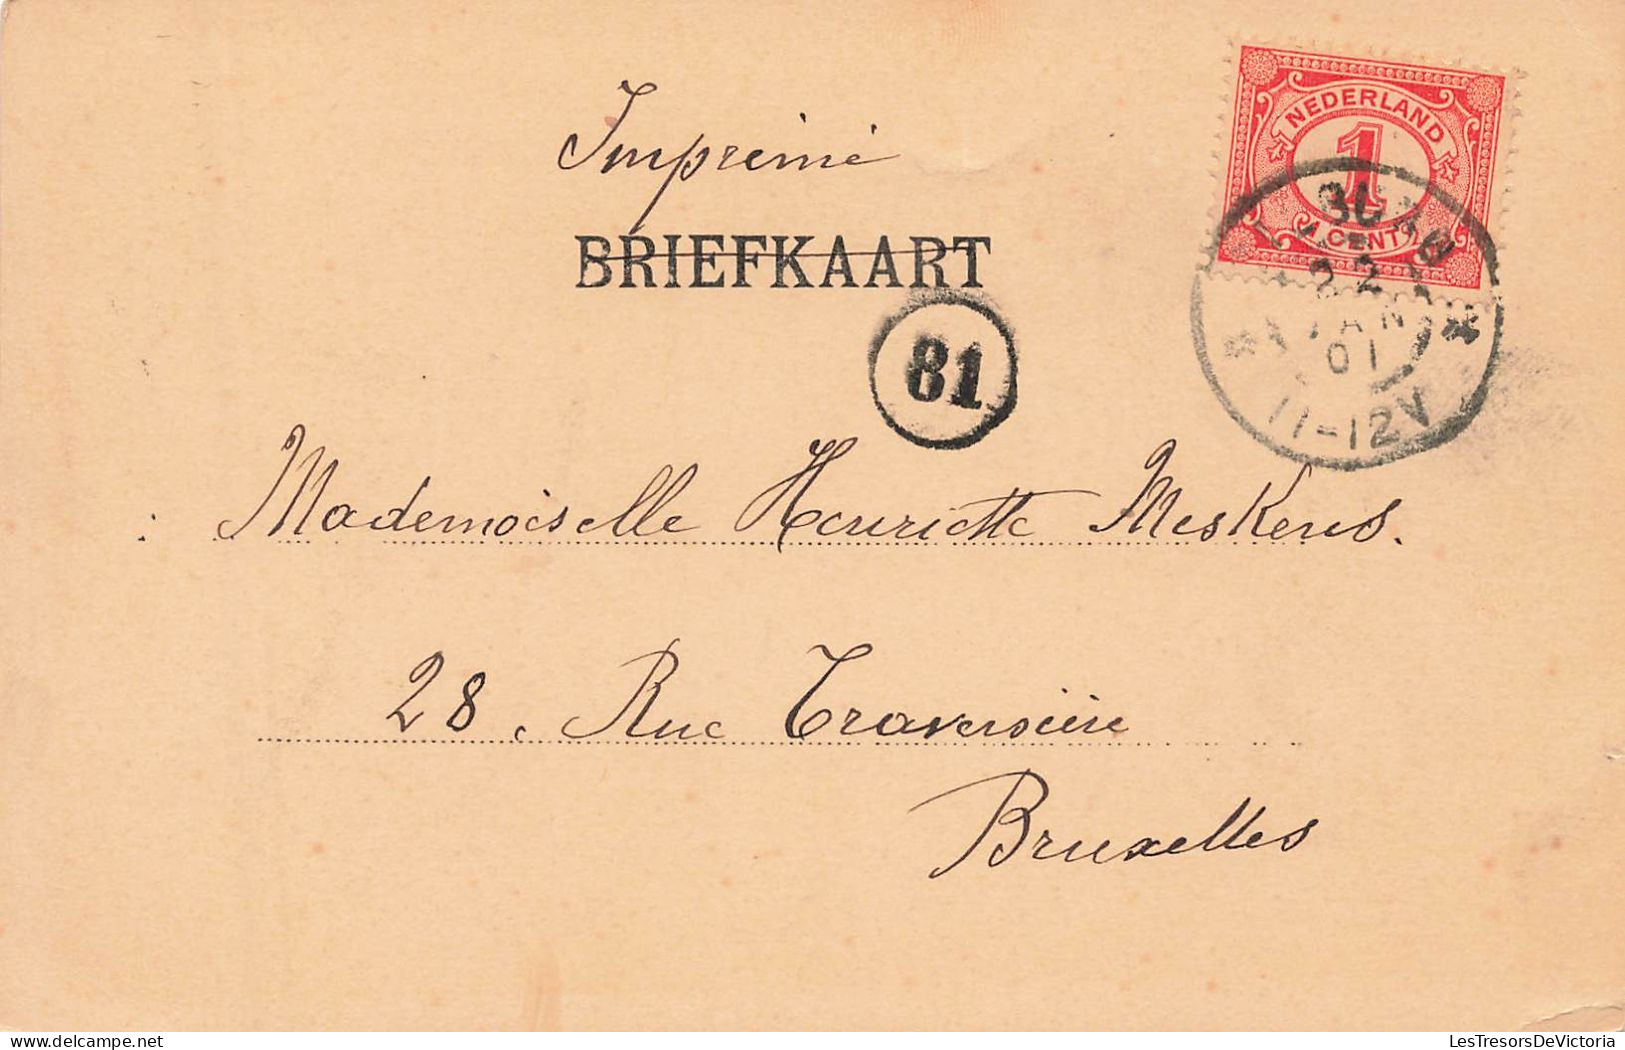 Imprimé
NEDERLAND
1
1 CENT
BRIEFKAART
22
JAN
01
11-12V
81
Mademoiselle Henriette Meskens.
28, Rue Traversière
Bruxelles
LesTresorsDeVictoria